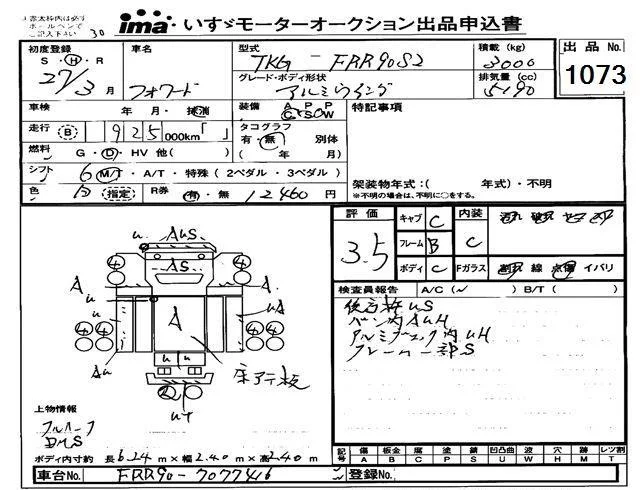 ※赤太枠内は必ず
ボールペンで
ご記入下さい
30
ima いすゞモーターオークション出品申込書
初度登録 車名 型式 積載 (kg) 出品No.
S・H・R TKG- FRR90S2 3000
27/3月 フォワード グレード・ボディ形状 排気量 (cc) 1073
アルミウイング 5190
車検 年・月・抹消 装備 A P P C S O W 特記事項
走行 B 925 000km「 」 タコグラフ 有・無 別体
燃料 G・D・HV 他( ) ( 年 月)
シフト 6 M/T・A/T・特殊 (2ペダル・3ペダル) 架装物年式:( 年式)・不明
色 白 指定 R券 有・無 12460円 ※不明の場合は、不明に○をする。
評価 キャブ C 内装
3.5 フレーム B C
ボディ C Fガラス 割れ 線 点傷 イバリ
検査員報告 A/C( ) B/T( )
u AuS
4 AS 4
A A
u uA
A
4 4
Au
u u
床アテ板
uT
後右枠uS
バン内AuH
アルミブロック内uH
フレーム一部S
上物情報
フルハーフ
DMS
ボディ内寸約 長6.24m×幅2.40m×高2.40m
記号 傷 板金 腐 塗 錆 凹凸曲 波 穴 跡 レツ割
A B C P S U W H M T
車台No. FRR90-7077416 登録No.